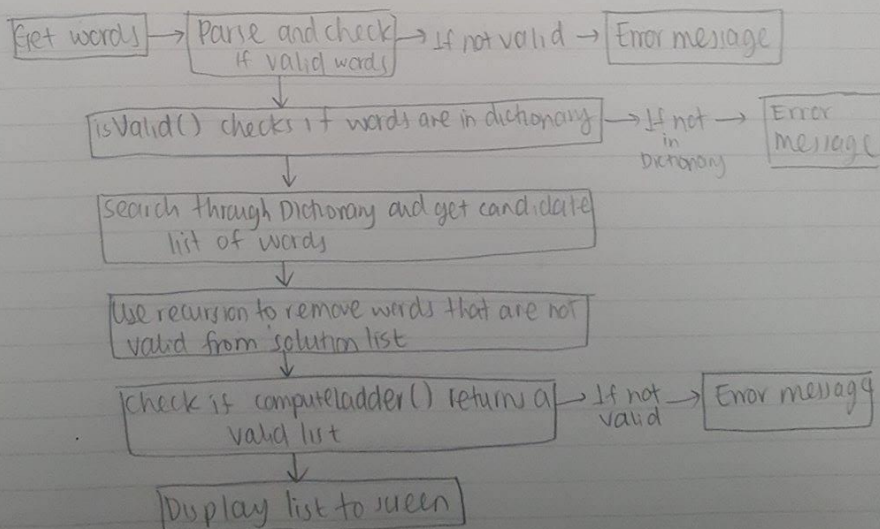 Get words
Parse and check
if valid words
If not valid
Error message
isValid() checks if words are in dictionary
If not
in
Dictionary
Error
message
Search through Dictionary and get candidate
list of words
Use recursion to remove words that are not
valid from solution list
Check if computeladder() returns a
valid list
If not
valid
Error message
Display list to screen